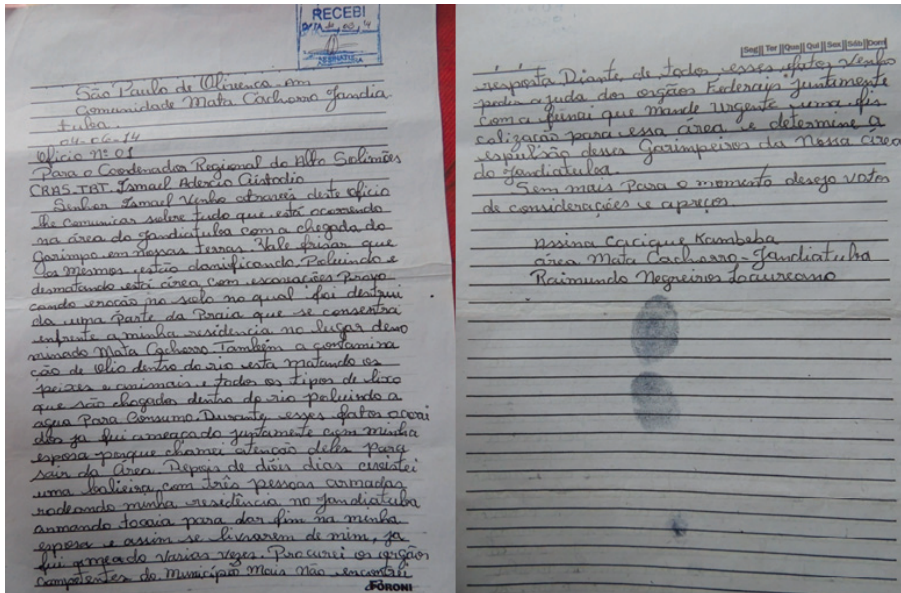 RECEBI
ASSINATURA
São Paulo de Olivenca - Am
Comunidade Mata Cachorro Jandia
tuba.
04-06-14
Oficio Nº 01
Para o Coordenador Regional do Alto Solimões
CRAS.TBT. Ismael Adercio Custodio
Senhor Ismael Venho atravéz deste oficio
lhe comunicar sobre tudo que está ocorrendo
na área do Jandiatuba com a chegada do
Garimpo em nossas terras. Vale frisar que
os mesmos estão danificando Poluindo e
desmatando está área com escavações Provo
cando erocão no solo no qual foi destrui
da uma parte da Praia que se consentra
enfrente a minha residencia no lugar deno
minado Mata Cachorro Também a contamina
cão de olio dentro do rio esta matando os
peixes e animais e todos os tipos de lixo
que são chogados dentro do rio poluindo a
agua Para Consumo. Durante esses fatos ocorri
dos ja fui ameaçado juntamente com minha
esposa porque chamei atenção deles Para
sair da Área. Depois de dois dias
uma balieira com três pessoas armadas
rodeando minha residência no Jandiatuba
armando tocaia para dar fim na minha
esposa e assim se livrarem de mim, ja
fui ameado varias vezes. Procurei os orgãos
Competentes do Município Mais não encontrei
FORONI
Seg Ter Qua Qui Sex Sáb Dom
resposta Diante de todos esses fatos Venho
pedir ajuda dos orgãos Federais juntamente
com a funai que mande Urgente uma fis
calização para essa área e determine a
espulsão desses Garimpeiros da Nossa área
do Jandiatuba.
Sem mais Para o momento desejo Votos
de considerações e apreços.
Assina Cacique Kambeba
área Mata Cachorro - Jandiatuba
Raimundo Nogreiros Laureano